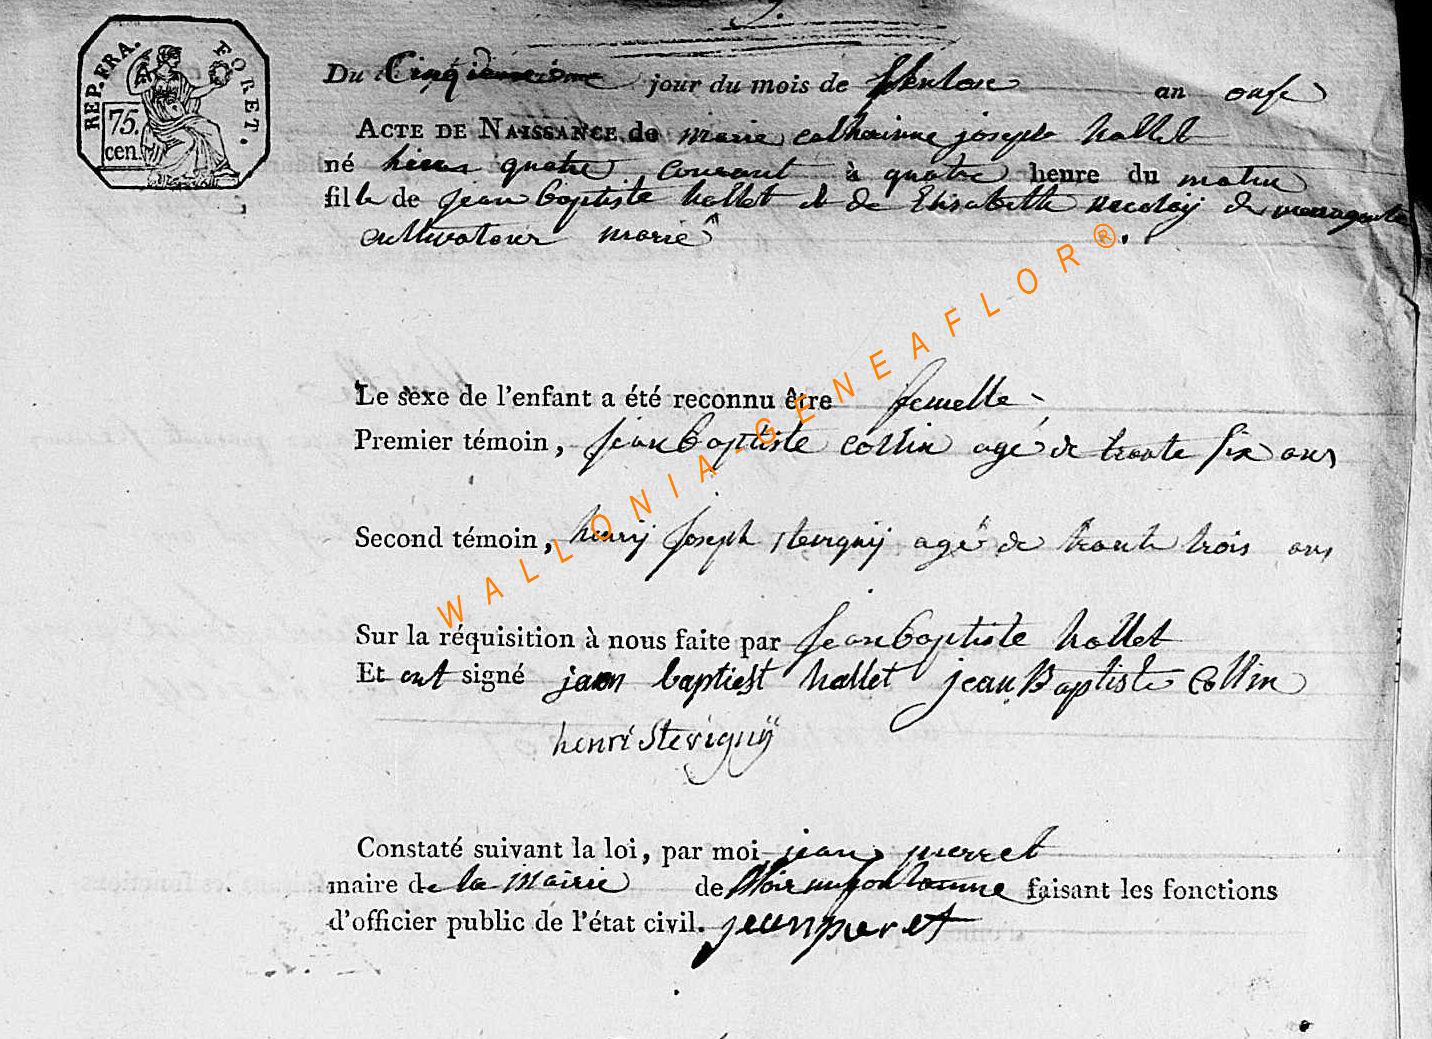 5.
REP. FRA. FORET.
75. cen.
Du Cinqieme jour du mois de Ventose an onse
ACTE DE NAISSANCE de marie catherinne joseph hallet
né hiers quatre courant à quatre heure du matin
fille de jean baptiste hallet et de Elisabeth nicolay de
cultivateur marié
Le sexe de l'enfant a été reconnu être femelle
Premier témoin, jean baptiste collin agé de trente six ans
Second témoin, henry joseph stevigny agé de trente trois ans
Sur la réquisition à nous faite par jean baptiste hallet
Et ont signé jean baptiest hallet jean Baptiste Collin
henri Stevignÿ
Constaté suivant la loi, par moi jean pierret
maire de la Mairie de faisant les fonctions
d'officier public de l'état civil. jean pieret
WALLONIA-GENEAFLOR®